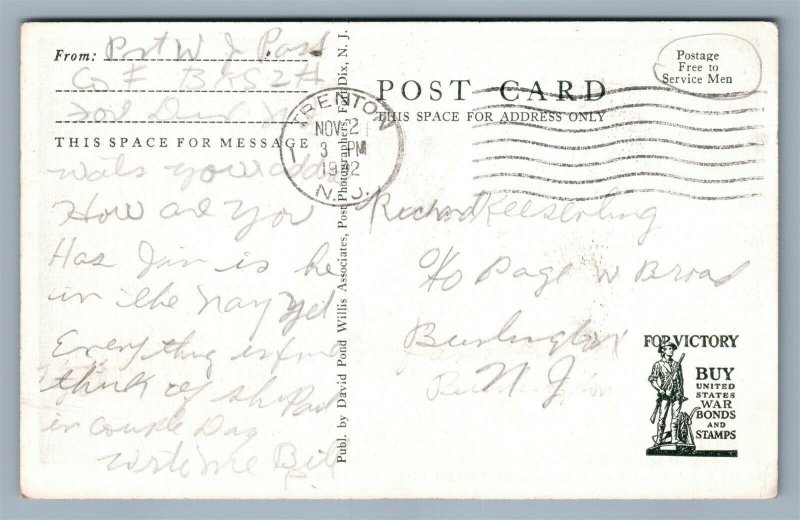 From: Pvt W J
Co F B
Fort
THIS SPACE FOR MESSAGE
wats your
How are You
Has Jim is he
in the Navy Yet
Everything is fine
think of
in couple Day
write me Bill
Publ. by David Pond Willis Associates, Post Photographers, Fort Dix, N. J.
POST CARD
THIS SPACE FOR ADDRESS ONLY
Postage
Free to
Service Men
TRENTON
NOV 2
3 PM
1942
N.J.
1
Richard
c/o Page W Broad
Burlington
N J
FOR VICTORY
BUY
UNITED
STATES
WAR
BONDS
AND
STAMPS